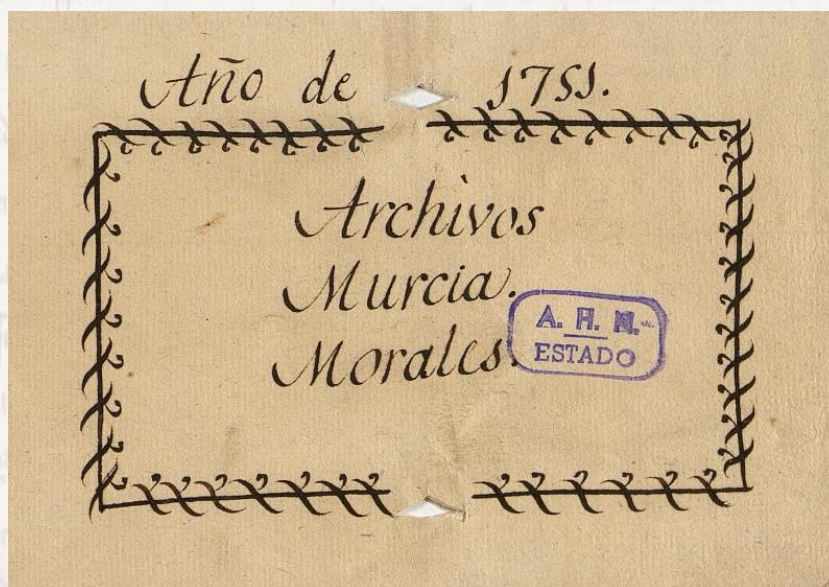 Año de 1751.
Archivos
Murcia.
Morales.
A. H. N.
ESTADO